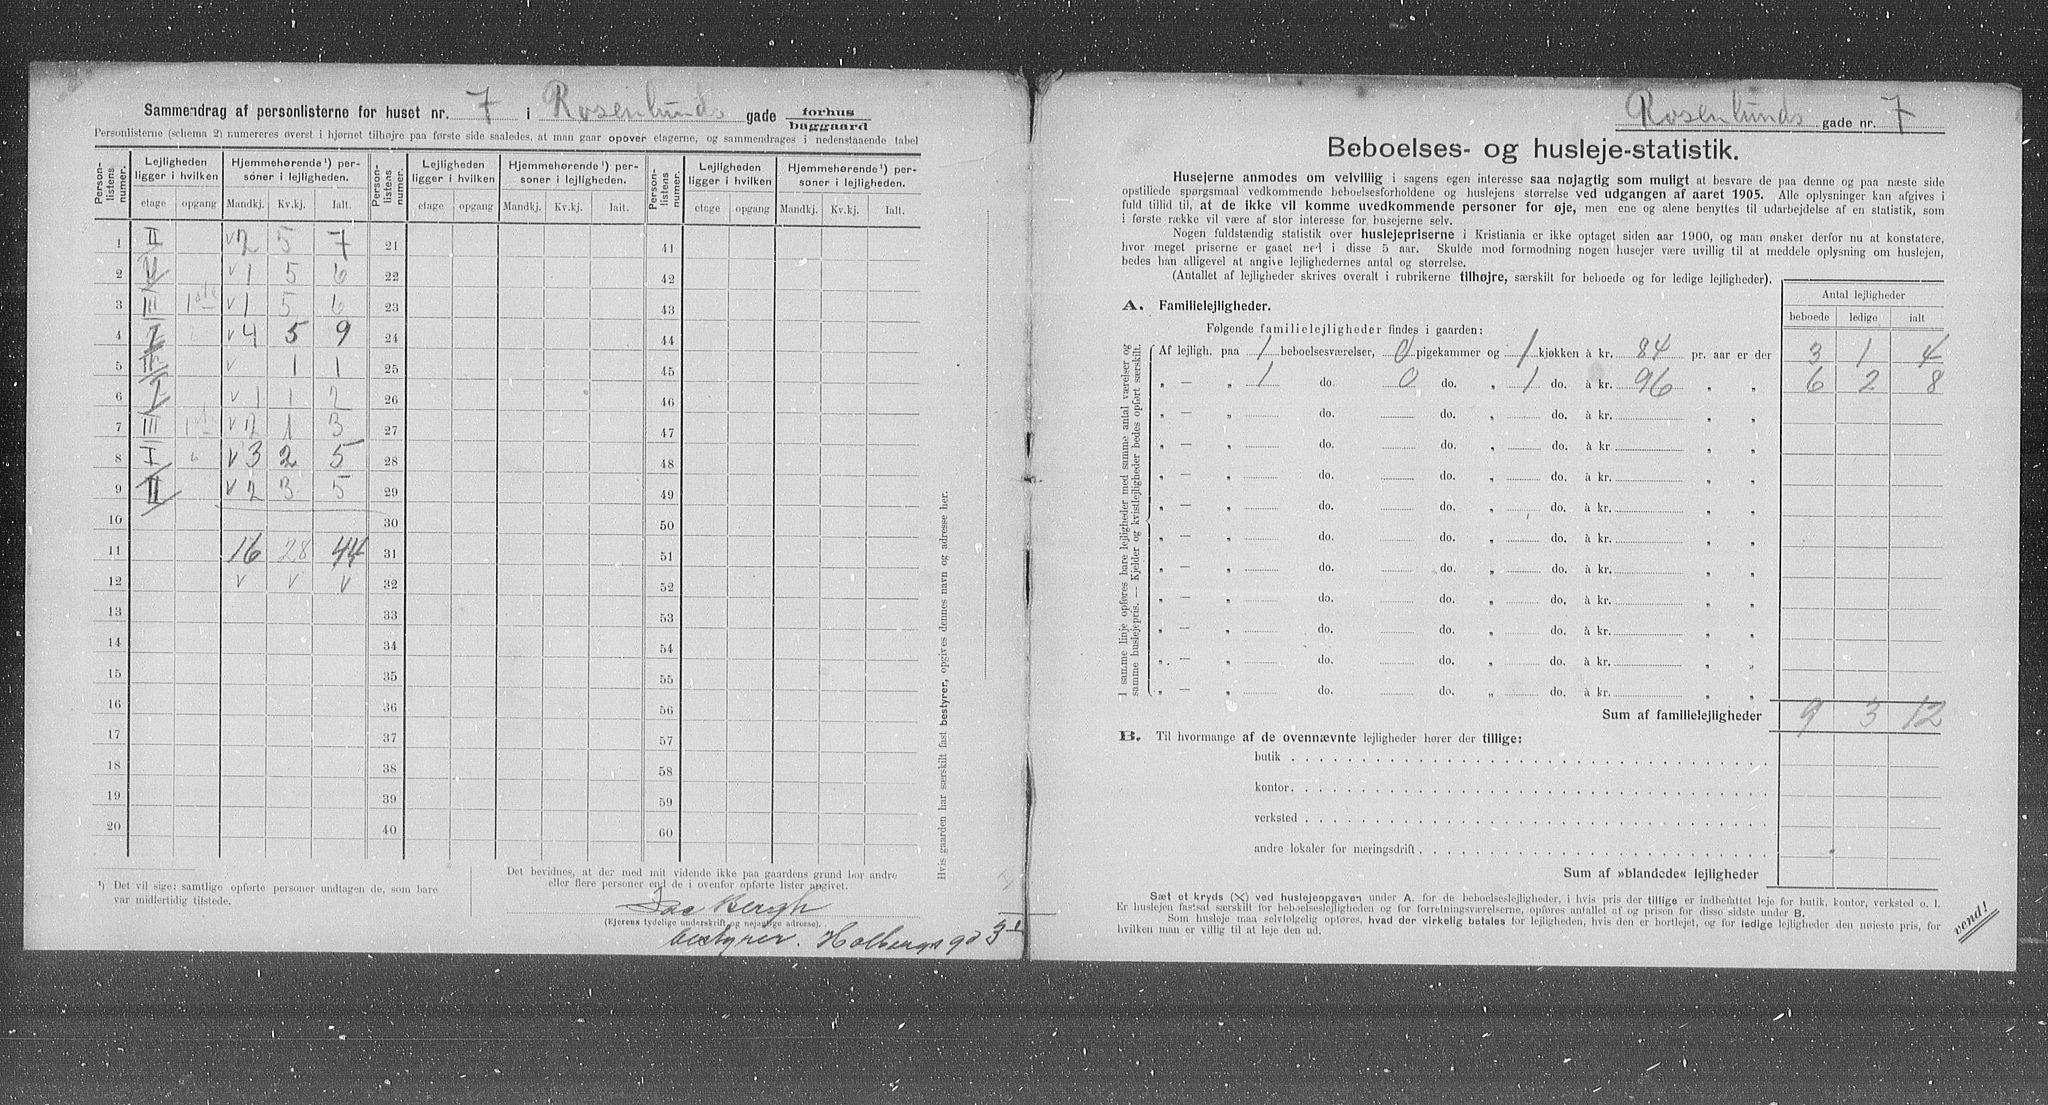 Sammendrag af personlisterne for huset nr. 7 i Rosenlunds gade forhus baggaard
Personlisterne (schema 2) numereres øverst i hjørnet tilhøjre paa første side saaledes, at man gaar opover etagerne, og sammendrages i nedenstaaende tabel
Person-listens numer. Lejligheden ligger i hvilken etage opgang Hjemmehørende¹) personer i lejligheden. Mandkj. Kv.kj. Ialt.
Person-listens numer. Lejligheden ligger i hvilken etage opgang Hjemmehørende¹) personer i lejligheden. Mandkj. Kv.kj. Ialt.
Person-listens numer. Lejligheden ligger i hvilken etage opgang Hjemmehørende¹) personer i lejligheden. Mandkj. Kv.kj. Ialt.
1 II v 2 5 7 21 41
2 v 1 5 6 22 42
3 III 1 v 1 5 6 23 43
4 I v 4 5 9 24 44
5 v 1 1 25 45
6 I v 1 1 2 26 46
7 III 1 v 2 1 3 27 47
8 I v 3 2 5 28 48
9 II v 2 3 5 29 49
10 30 50
11 16 28 44 31 51
12 v v v 32 52
13 33 53
14 34 54
15 35 55
16 36 56
17 37 57
18 38 58
19 39 59
20 40 60
¹) Det vil sige: samtlige opførte personer undtagen de, som bare
var midlertidig tilstede.
Det bevidnes, at der med mit vidende ikke paa gaardens grund bor andre
eller flere personer end de i ovenfor opførte lister angivet.
Bergh
(Ejerens tydelige underskrift og nøjagtige adresse).
bestyrer. Holbergs gd 3
Hvis gaarden har særskilt fast bestyrer, opgives dennes navn og adresse her.
Rosenlunds gade nr. 7
Beboelses- og husleje-statistik.
Husejerne anmodes om velvillig i sagens egen interesse saa nøjagtig som muligt at besvare de paa denne og paa næste side
opstillede spørgsmaal vedkommende beboelsesforholdene og huslejens størrelse ved udgangen af aaret 1905. Alle oplysninger kan afgives i
fuld tillid til, at de ikke vil komme uvedkommende personer for øje, men ene og alene benyttes til udarbejdelse af en statistik, som
i første række vil være af stor interesse for husejerne selv.
Nogen fuldstændig statistik over huslejepriserne i Kristiania er ikke optaget siden aar 1900, og man ønsker derfor nu at konstatere,
hvor meget priserne er gaaet ned i disse 5 aar. Skulde mod formodning nogen husejer være uvillig til at meddele oplysning om huslejen,
bedes han alligevel at angive lejlighedernes antal og størrelse.
(Antallet af lejligheder skrives overalt i rubrikerne tilhøjre, særskilt for beboede og for ledige lejligheder).
Antal lejligheder
beboede ledige ialt
A. Familielejligheder.
Følgende familielejligheder findes i gaarden:
Af lejligh. paa 1 beboelsesværelser, 0 pigekammer og 1 kjøkken à kr. 84 pr. aar er der 3 1 4
„ — „ 1 do. 0 do. „ 1 do. à kr. 96 „ „ 6 2 8
„ — „ do. do. „ do. à kr. „ „
„ — „ do. do. „ do. à kr. „ „
„ — „ do. do. „ do. à kr. „ „
„ — „ do. do. „ do. à kr. „ „
„ — „ do. do. „ do. à kr. „ „
„ — „ do. do. „ do. à kr. „ „
„ — „ do. do. „ do. à kr. „ „
„ — „ do. do. „ do. à kr. „ „
„ — „ do. do. „ do. à kr. „ „
„ — „ do. do. „ do. à kr. „ „
I samme linje opføres bare lejligheder med samme antal værelser og
samme huslejepris. — Kjelder og kvistlejligheder bedes opført særskilt.
Sum af familielejligheder 9 3 12
B. Til hvormange af de ovennævnte lejligheder hører der tillige:
butik
kontor
verksted
andre lokaler for næringsdrift
Sum af »blandede« lejligheder
Sæt et kryds (X) ved huslejeopgaven under A. for de beboelseslejligheder, i hvis pris der tillige er indbefattet leje for butik, kontor, verksted o. l.
Er huslejen fastsat særskilt for beboelseslejligheden og for forretningsværelserne, opføres antallet af og prisen for disse sidste under B.
Som husleje maa selvfølgelig opføres, hvad der virkelig betales for lejligheden, hvis den er bortlejet, og for ledige lejligheder den nøjeste pris, for
hvilken man er villig til at leje den ud.
vend!